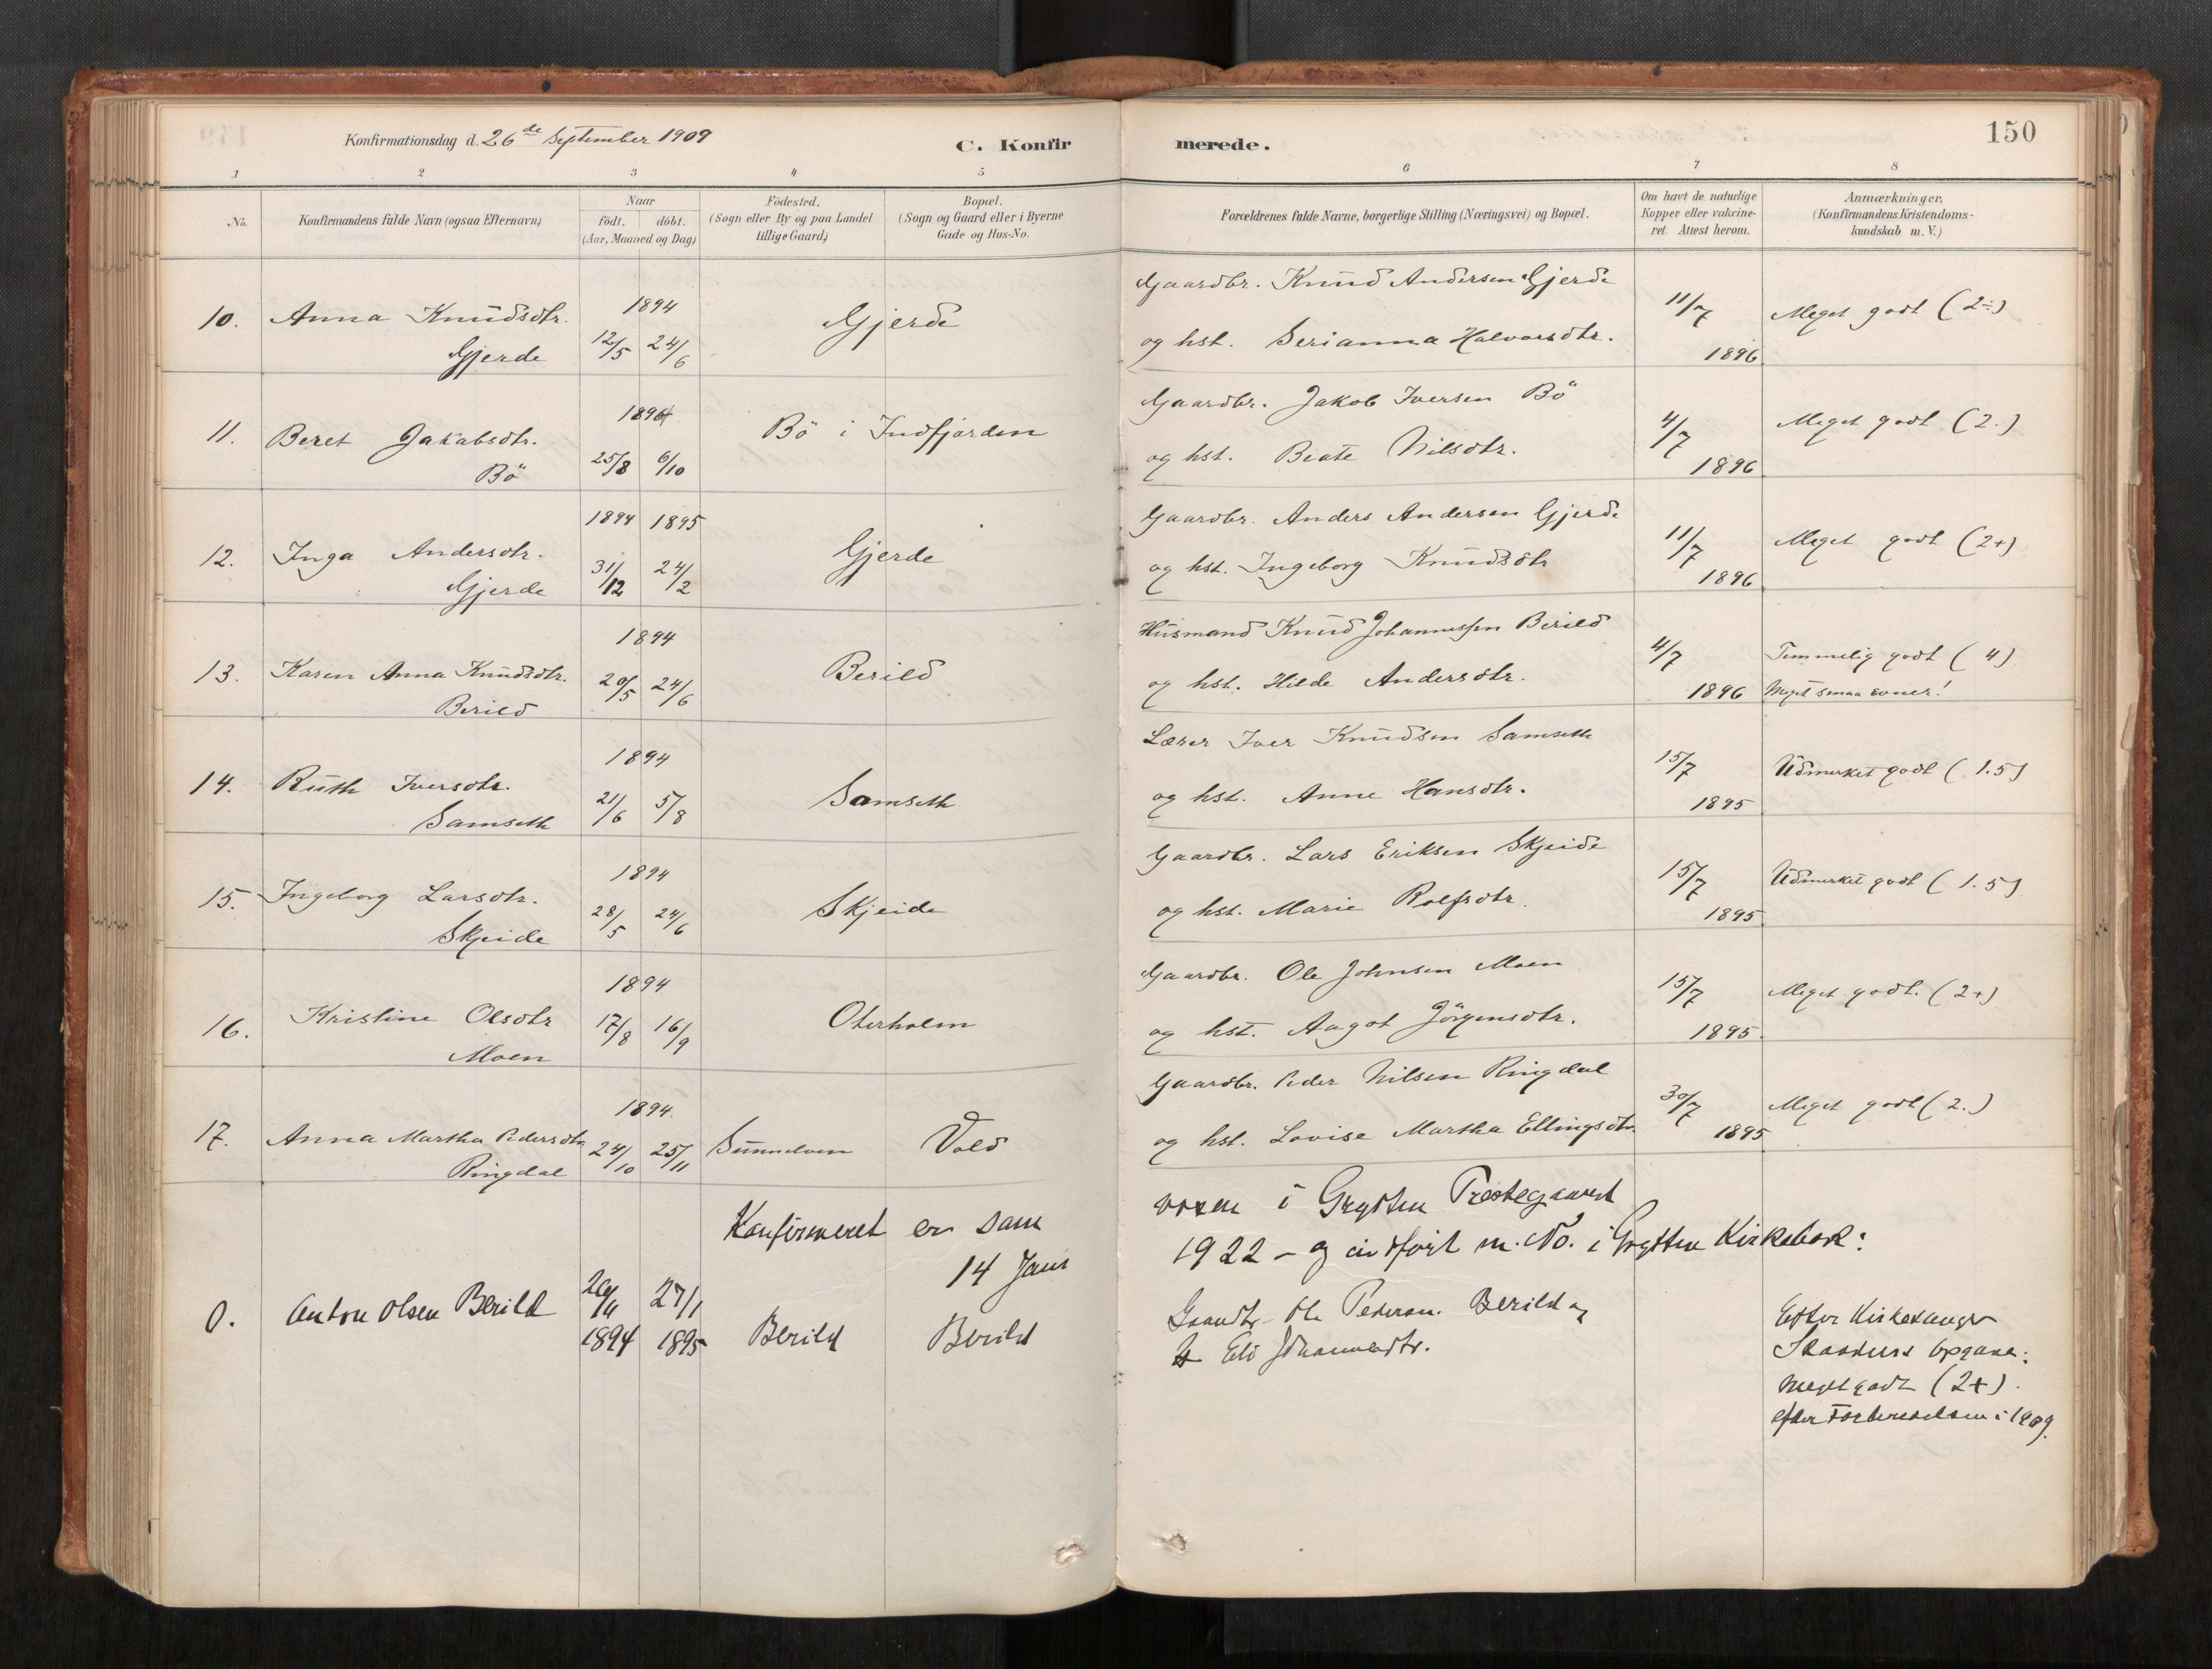 Konfirmationsdag d. 26de September 1909
C. Konfirmerede.
150
1 2 3 4 5 6 7 8
No.
Konfirmandens fulde Navn (ogsaa Efternavn)
Naar
födt. döbt.
(Aar, Maaned og Dag)
Födested.
(Sogn eller By og paa Landet
tillige Gaard)
Bopæl.
(Sogn og Gaard eller i Byerne
Gade og Hus-No.
Forældrenes fulde Navne, borgerlige Stilling (Næringsvei) og Bopæl.
Om havt de naturlige
Kopper eller vakcine-
ret. Attest herom.
Anmærkninger,
(Konfirmandens Kristendoms-
kundskab m. V.)
10. Anna Knudsdtr. 1894 Gjerde Gaardbr. Knud Andersen Gjerde 11/7 Meget godt (2÷)
Gjerde 12/5 24/6 og hst. Serianna Halvorsdtr. 1896
11. Beret Jakobsdtr. 1894 Bö i Indfjorden Gaardbr. Jakob Iversen Bö 4/7 Meget godt (2.)
Bö 25/8 6/10 og hst. Beate Nilsdtr. 1896
12. Inga Andersdtr. 1894 1895 Gjerde Gaardbr. Anders Andersen Gjerde 11/7 Meget godt (2+)
Gjerde 31/12 24/2 og hst. Ingeborg Knudsdtr 1896
13. Karen Anna Knudsdtr. 1894 Berild Husmand Knud Johannessen Berild 4/7 Temmelig godt (4)
Berild 20/5 24/6 og hst. Hilde Andersdtr. 1896 Meget smaa evner!
14. Ruth Iversdtr. 1894 Samseth Lærer Iver Knudsen Samseth 15/7 Udmerket godt (1.5)
Samseth 21/6 5/8 og hst. Anne Hansdtr. 1895
15. Ingeborg Larsdtr. 1894 Skjeide Gaardbr. Lars Eriksen Skjeide 15/7 Udmerket godt (1.5)
Skjeide 28/5 24/6 og hst. Marie Rolfsdtr. 1895
16. Kristine Olsdtr 1894 Oterholm Gaardbr. Ole Johnsen Moen 15/7 Meget godt. (2+)
Moen 17/8 16/9 og hst. Aagot Jörgensdtr. 1895
17. Anna Martha Pedersdtr. 1894 Sunnelven Vold Gaardbr. Peder Nilsen Ringdal 30/7 Meget godt (2.)
Ringdal 24/10 25/11 og hst. Lovise Martha Ellingsdtr. 1895
Konfirmeret er som voxen i Grytten Prestegaard
14 Janr 1922 - og indfört m. No. i Grytten Kirkebok:
0. Anton Olsen Berild 27/1 Gaardbr. Ole Pedersen Berild og Efter Kirkesanger
1894 1895 Berild Berild Johannesdtr. opgave:
Meget godt (2+).
efter Forberedelsen i 1909.